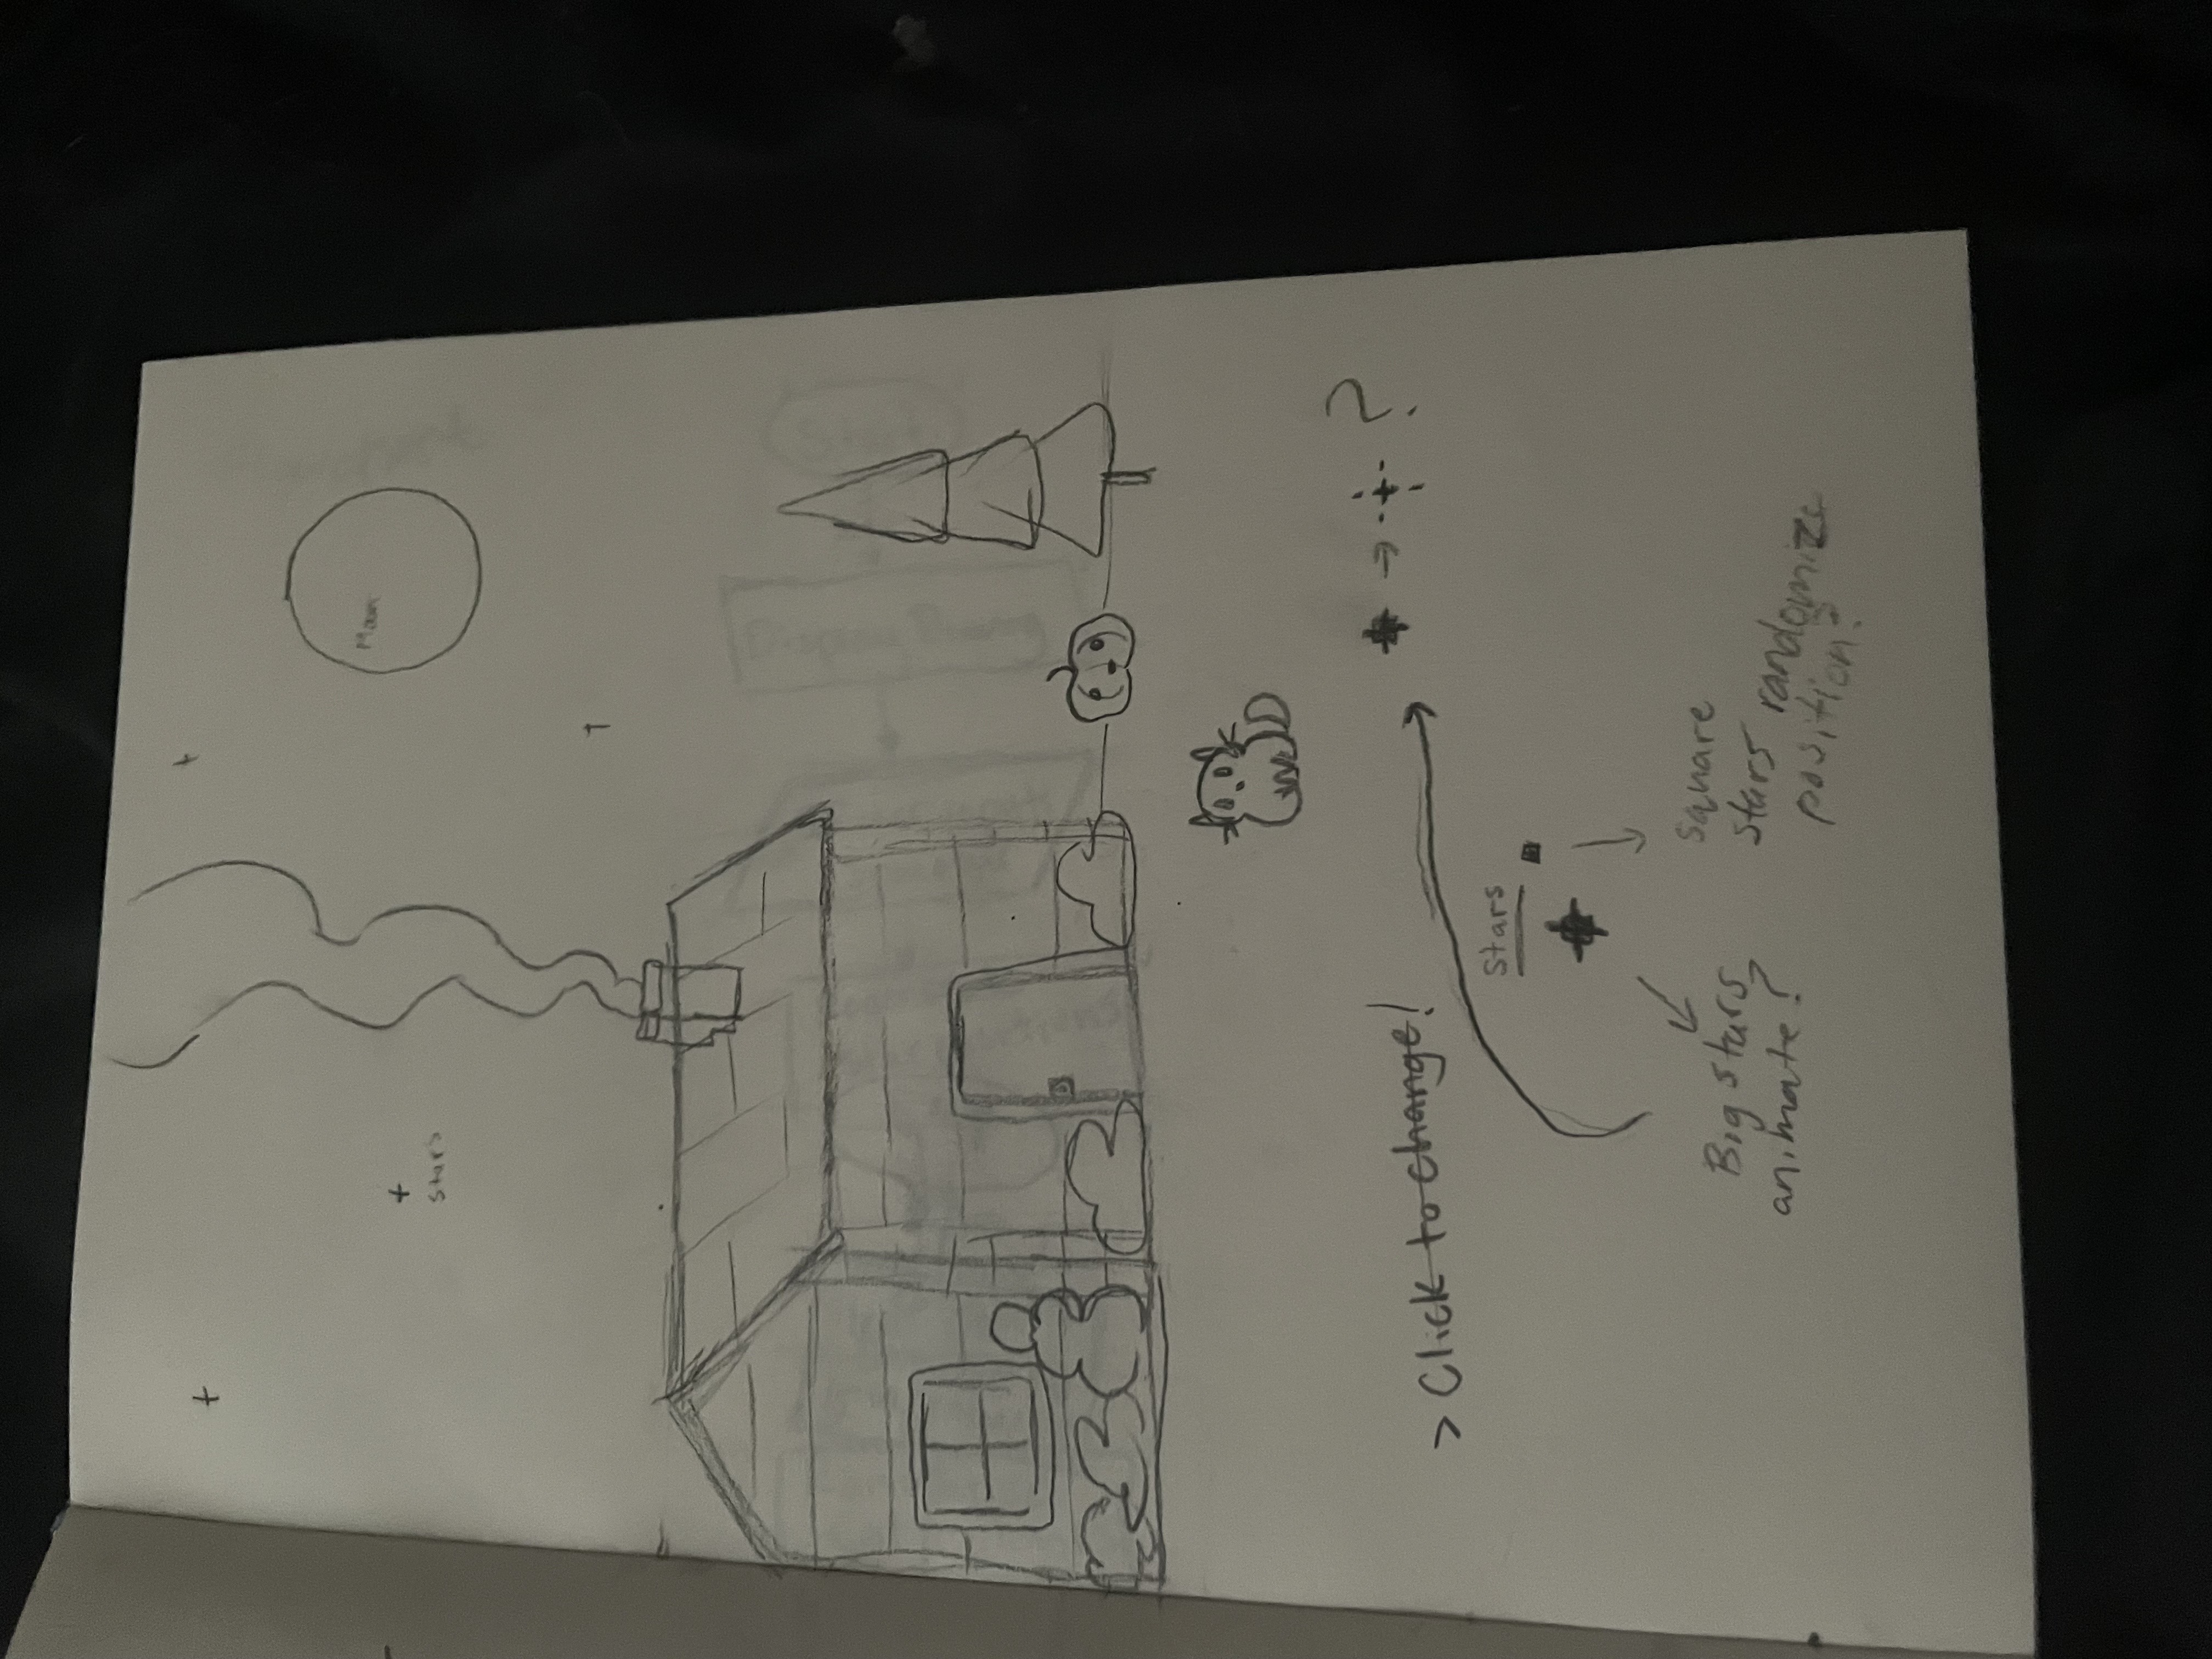 Moon
stars
> Click to change!
?
stars
Big stars
animate?
square
stars randomize
position?